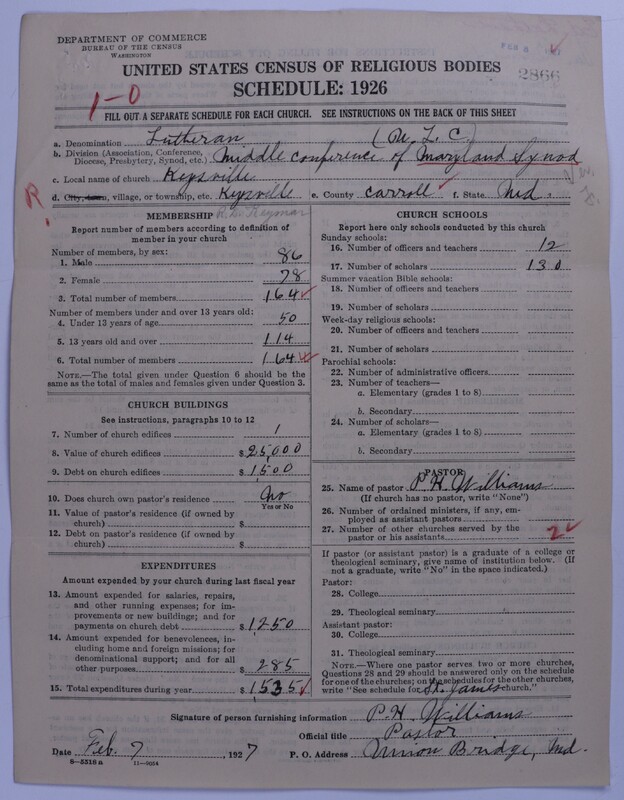 DEPARTMENT OF COMMERCE
BUREAU OF THE CENSUS
WASHINGTON
FEB 8
2866
UNITED STATES CENSUS OF RELIGIOUS BODIES
SCHEDULE: 1926
1-0
FILL OUT A SEPARATE SCHEDULE FOR EACH CHURCH. SEE INSTRUCTIONS ON THE BACK OF THIS SHEET
a. Denomination Lutheran (U L C)
b. Division (Association, Conference, Diocese, Presbytery, Synod, etc.) Middle Conference of Maryland Synod
c. Local name of church Keysville
R
d. City, town, village, or township, etc. Keysville e. County Carroll f. State Md.
R.D. Keymar
MEMBERSHIP
Report number of members according to definition of member in your church
Number of members, by sex:
1. Male 86
2. Female 78
3. Total number of members 164
Number of members under and over 13 years old:
4. Under 13 years of age 50
5. 13 years old and over 114
6. Total number of members 164
NOTE.—The total given under Question 6 should be the same as the total of males and females given under Question 3.
CHURCH BUILDINGS
See instructions, paragraphs 10 to 12
7. Number of church edifices 1
8. Value of church edifices $ 25,000
9. Debt on church edifices $ 1500
10. Does church own pastor's residence No
Yes or No
11. Value of pastor's residence (if owned by church) $
12. Debt on pastor's residence (if owned by church) $
EXPENDITURES
Amount expended by your church during last fiscal year
13. Amount expended for salaries, repairs, and other running expenses; for improvements or new buildings; and for payments on church debt $ 1250
14. Amount expended for benevolences, including home and foreign missions; for denominational support; and for all other purposes 285
15. Total expenditures during year $ 1535
CHURCH SCHOOLS
Report here only schools conducted by this church
Sunday schools:
16. Number of officers and teachers 12
17. Number of scholars 130
Summer vacation Bible schools:
18. Number of officers and teachers
19. Number of scholars
Week-day religious schools:
20. Number of officers and teachers
21. Number of scholars
Parochial schools:
22. Number of administrative officers
23. Number of teachers—
a. Elementary (grades 1 to 8)
b. Secondary
24. Number of scholars—
a. Elementary (grades 1 to 8)
b. Secondary
PASTOR
25. Name of pastor P. H. Williams
(If church has no pastor, write "None")
26. Number of ordained ministers, if any, employed as assistant pastors
27. Number of other churches served by the pastor or his assistants 2
If pastor (or assistant pastor) is a graduate of a college or theological seminary, give name of institution below. (If not a graduate, write "No" in the space indicated.)
Pastor:
28. College
29. Theological seminary
Assistant pastor:
30. College
31. Theological seminary
NOTE.—Where one pastor serves two or more churches, Questions 28 and 29 should be answered only on the schedule for one of the churches; on the schedules for the other churches, write "See schedule for St. James church."
Signature of person furnishing information P. H. Williams
Official title Pastor
Date Feb. 7, 1927 P. O. Address Union Bridge, Md.
8-5518 a 11-9084